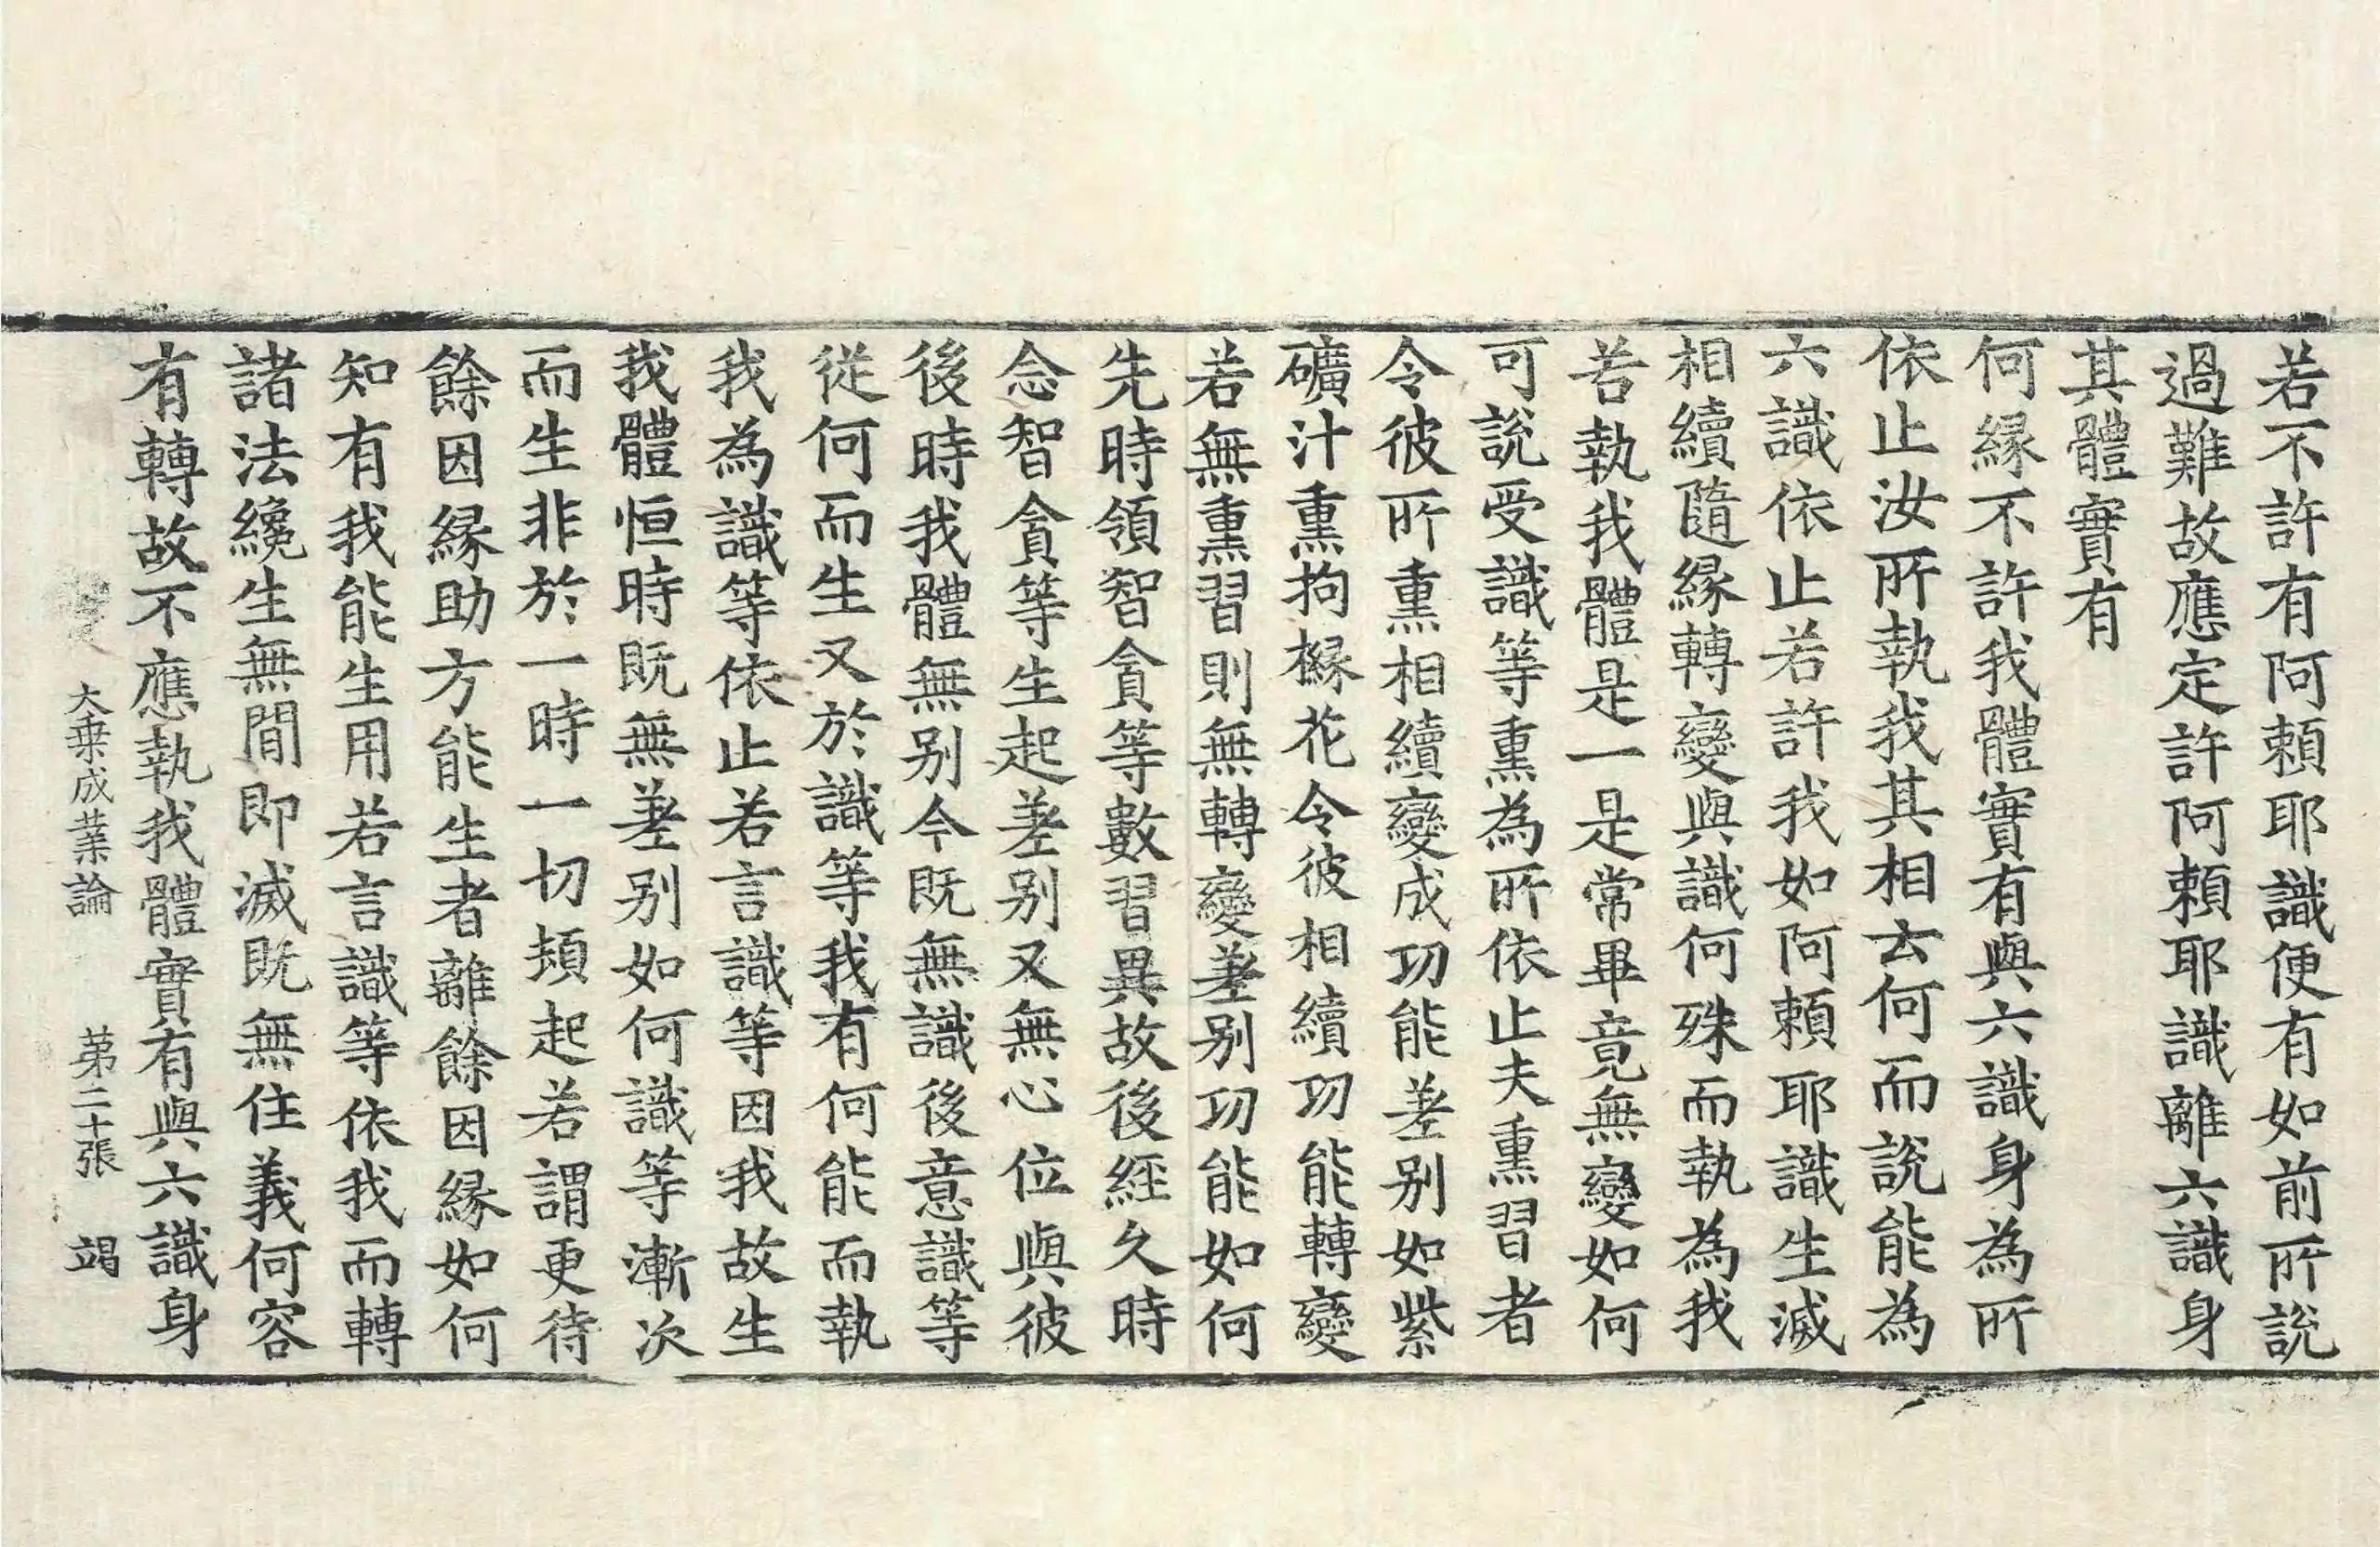 若不許有阿頼耶識便有如前所說
過難故應定許阿頼耶識離六識身
其體實有
何緣不許我體實有與六識身為所
依止汝所執我其相云何而說能為
六識依止若許我如阿頼耶識生滅
相續隨緣轉變與識何殊而執為我
若執我體是一是常畢竟無變如何
可說受識等熏為所依止夫熏習者
令彼所熏相續變成功能差別如紫
礦汁熏拘櫞花令彼相續功能轉變
若無熏習則無轉變差別功能如何
先時領智貪等數習異故後經久時
念智貪等生起差別又無心位與彼
後時我體無別今既無識後意識等
從何而生又於識等我有何能而執
我為識等依止若言識等因我故生
我體恒時既無差別如何識等漸次
而生非於一時一切頓起若謂更待
餘因緣助方能生者離餘因緣如何
知有我能生用若言識等依我而轉
諸法纔生無間即滅既無住義何容
有轉故不應執我體實有與六識身
大乗成業論 苐二十張 竭